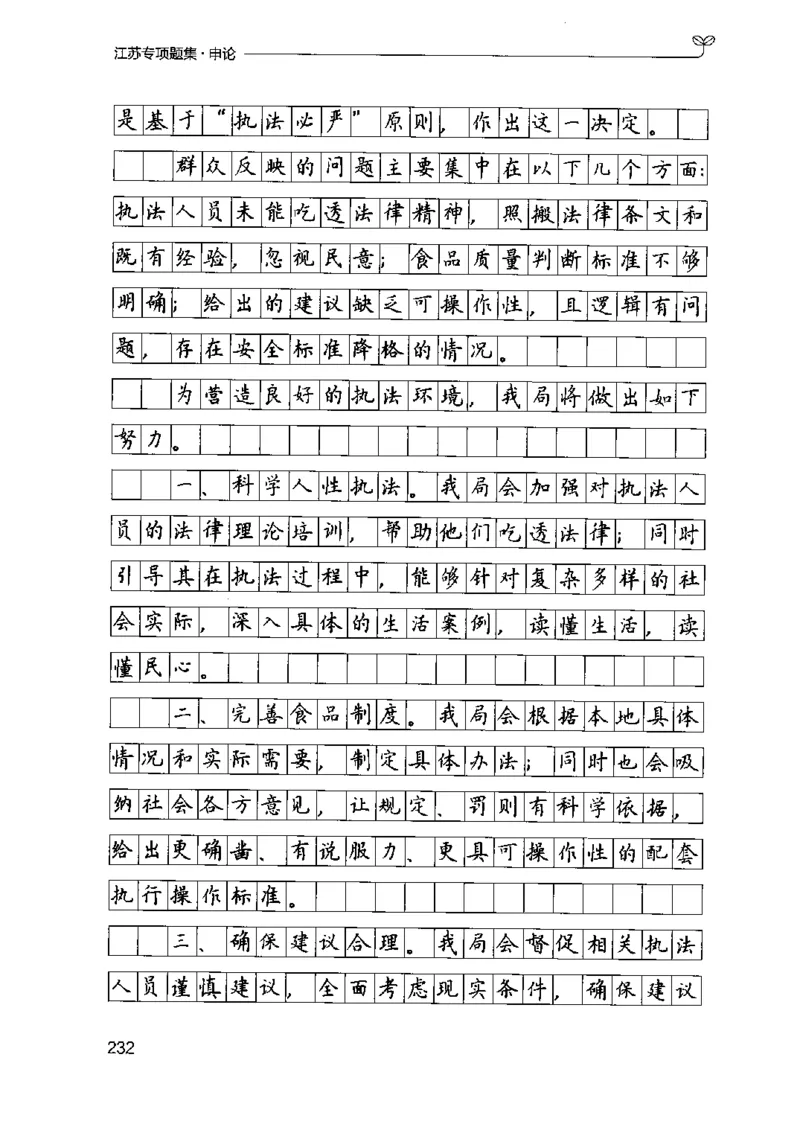 江苏专项题集·申论
是基于“执法必严”原则，作出这一决定。
群众反映的问题主要集中在以下几个方面：
执法人员未能吃透法律精神，照搬法律条文和
既有经验，忽视民意；食品质量判断标准不够
明确；给出的建议缺乏可操作性，且逻辑有问
题，存在安全标准降格的情况。
为营造良好的执法环境，我局将做出如下
努力。
一、科学人性执法。我局会加强对执法人
员的法律理论培训，帮助他们吃透法律；同时
引导其在执法过程中，能够针对复杂多样的社
会实际，深入具体的生活案例，读懂生活，读
懂民心。
二、完善食品制度。我局会根据本地具体
情况和实际需要，制定具体办法；同时也会吸
纳社会各方意见，让规定、罚则有科学依据，
给出更确凿、有说服力、更具可操作性的配套
执行操作标准。
三、确保建议合理。我局会督促相关执法
人员谨慎建议，全面考虑现实条件，确保建议
232